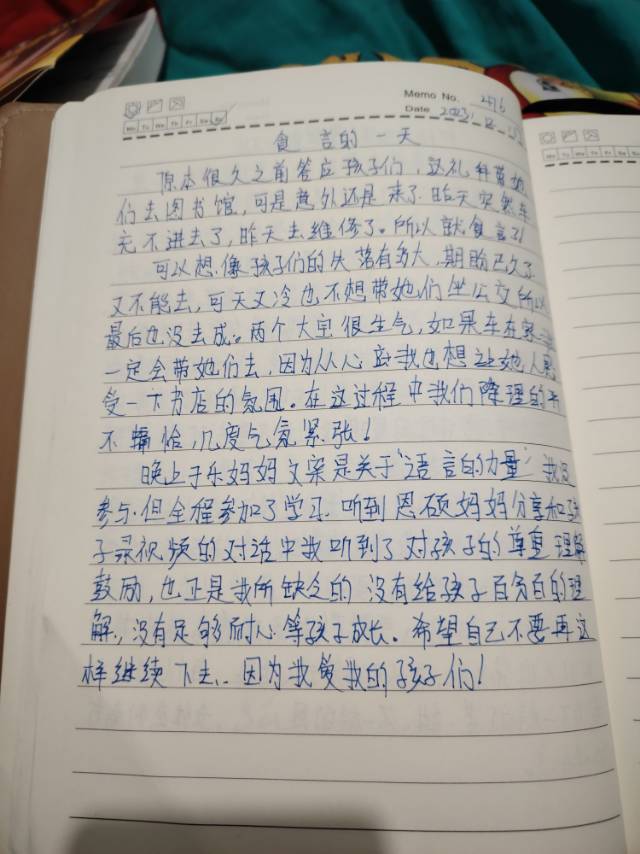 Memo No. 276
Date 2023.
Mo Tu We Th Fr Sa Su
食言的一天
原本很久之前答应孩子们,这礼拜带她
们去图书馆,可是意外还是来了.昨天突然车
充不进去了,昨天去维修了。所以就食言了!
可以想像孩子们的失落有多大,期盼已久了
又不能去,可天又冷也不想带她们坐公交所以
最后也没去成。两个大宝很生气,如果车在家
一定会带她们去,因为从心底我也想让她人感
受一下书店的氛围。在这过程中我们降理的
不搞恰,几度气氛紧张!
晚上于乐妈妈文案是关于"语言的力量"我没
参与.但全程参加了学习.听到恩硕妈妈分享和孩
子录视频的对话中我听到了对孩子的尊重 理解
鼓励,也正是我所缺乏的 没有给孩子百分百的理
解,没有足够耐心等孩子成长。希望自己不要再这
样继续下去..因为我爱我的孩子们!